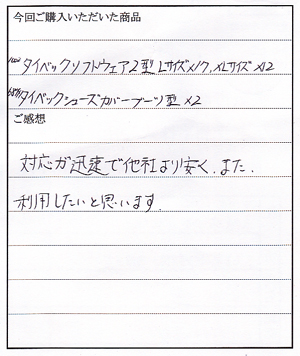 今回ご購入いただいた商品
タイベックソフトウェア2型 Lサイズ×17, XLサイズ×12
タイベックシューズカバーブーツ型 ×2
ご感想
対応が迅速で他社より安く、また、
利用したいと思います。